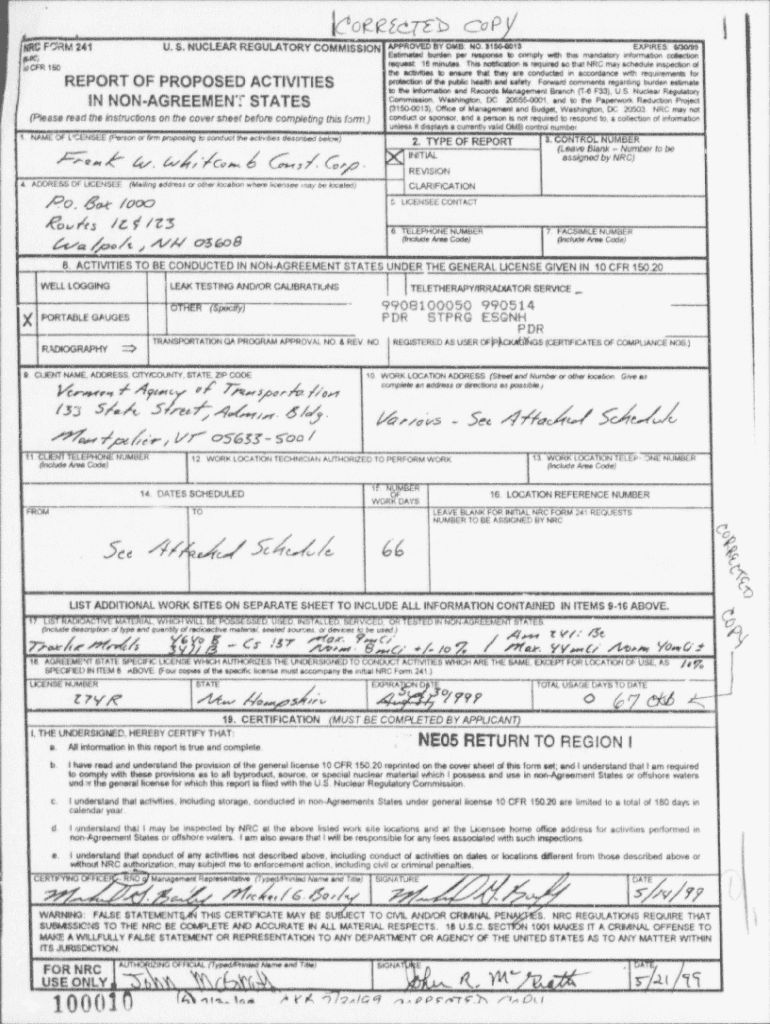 CORRECTED COPY
NRC FORM 241
U. S. NUCLEAR REGULATORY COMMISSION
10 CFR 150
REPORT OF PROPOSED ACTIVITIES
IN NON-AGREEMENT STATES
(Please read the instructions on the cover sheet before completing this form.)
APPROVED BY OMB: NO. 3150-0013 EXPIRES: 6/30/99
Estimated burden per response to comply with this mandatory information collection
request: 16 minutes. This notification is required so that NRC may schedule inspection of
the activities to ensure that they are conducted in accordance with requirements for
protection of the public health and safety. Forward comments regarding burden estimate
to the Information and Records Management Branch (T-6 F33), U.S. Nuclear Regulatory
Commission, Washington, DC 20555-0001, and to the Paperwork Reduction Project
(3150-0013), Office of Management and Budget, Washington, DC 20503. NRC may not
conduct or sponsor, and a person is not required to respond to, a collection of information
unless it displays a currently valid OMB control number.
1. NAME OF LICENSEE (Person or firm proposing to conduct the activities described below)
Frank W. Whitcomb Const. Corp.
2. TYPE OF REPORT
X INITIAL
REVISION
CLARIFICATION
3. CONTROL NUMBER
(Leave Blank - Number to be
assigned by NRC)
4. ADDRESS OF LICENSEE (Mailing address or other location where licensee may be located)
P.O. Box 1000
Routes 12 & 123
Walpole, NH 03608
5. LICENSEE CONTACT
6. TELEPHONE NUMBER
(Include Area Code)
7. FACSIMILE NUMBER
(Include Area Code)
8. ACTIVITIES TO BE CONDUCTED IN NON-AGREEMENT STATES UNDER THE GENERAL LICENSE GIVEN IN 10 CFR 150.20
WELL LOGGING
LEAK TESTING AND/OR CALIBRATIONS
TELETHERAPY/IRRADIATOR SERVICE
X PORTABLE GAUGES
OTHER (Specify)
9908100050 990514
PDR STPRG ESGNH
PDR
RADIOGRAPHY ⇒
TRANSPORTATION QA PROGRAM APPROVAL NO. & REV. NO.
REGISTERED AS USER OF PACKAGINGS (CERTIFICATES OF COMPLIANCE NOS.)
9. CLIENT NAME, ADDRESS, CITY/COUNTY, STATE, ZIP CODE
Vermont Agency of Transportation
133 State Street, Admin. Bldg.
Montpelier, VT 05633-5001
10. WORK LOCATION ADDRESS (Street and Number or other location. Give as
complete an address or directions as possible.)
Various - See Attached Schedule
11. CLIENT TELEPHONE NUMBER
(Include Area Code)
12. WORK LOCATION TECHNICIAN AUTHORIZED TO PERFORM WORK
13. WORK LOCATION TELEPHONE NUMBER
(Include Area Code)
14. DATES SCHEDULED
15. NUMBER
OF
WORK DAYS
16. LOCATION REFERENCE NUMBER
FROM
TO
LEAVE BLANK FOR INITIAL NRC FORM 241 REQUESTS
NUMBER TO BE ASSIGNED BY NRC
See Attached Schedule
66
CORRECTED COPY
LIST ADDITIONAL WORK SITES ON SEPARATE SHEET TO INCLUDE ALL INFORMATION CONTAINED IN ITEMS 9-16 ABOVE.
17. LIST RADIOACTIVE MATERIAL, WHICH WILL BE POSSESSED, USED, INSTALLED, SERVICED, OR TESTED IN NON-AGREEMENT STATES
(Include description of type and quantity of radioactive material, sealed sources, or devices to be used.)
Troxler Models 4640 B 3411 B - Cs 137 Max. 9mCi Norm. 8mCi +/- 10% / Am 241: Be Max. 44mCi Norm 40mCi ± 10%
18. AGREEMENT STATE SPECIFIC LICENSE WHICH AUTHORIZES THE UNDERSIGNED TO CONDUCT ACTIVITIES WHICH ARE THE SAME, EXCEPT FOR LOCATION OF USE, AS
SPECIFIED IN ITEM 8 ABOVE. (Four copies of the specific license must accompany the initial NRC Form 241.)
LICENSE NUMBER
STATE
EXPIRATION DATE
TOTAL USAGE DAYS TO DATE
274R
New Hampshire
1999
0 67
19. CERTIFICATION (MUST BE COMPLETED BY APPLICANT)
I, THE UNDERSIGNED, HEREBY CERTIFY THAT:
NE05 RETURN TO REGION I
a. All information in this report is true and complete.
b. I have read and understand the provision of the general license 10 CFR 150.20 reprinted on the cover sheet of this form set; and I understand that I am required
to comply with these provisions as to all byproduct, source, or special nuclear material which I possess and use in non-Agreement States or offshore waters
under the general license for which this report is filed with the U.S. Nuclear Regulatory Commission.
c. I understand that activities, including storage, conducted in non-Agreements States under general license 10 CFR 150.20 are limited to a total of 180 days in
calendar year.
d. I understand that I may be inspected by NRC at the above listed work site locations and at the Licensee home office address for activities performed in
non-Agreement States or offshore waters. I am also aware that I will be responsible for any fees associated with such inspections.
e. I understand that conduct of any activities not described above, including conduct of activities on dates or locations different from those described above or
without NRC authorization, may subject me to enforcement action, including civil or criminal penalties.
CERTIFYING OFFICER - RSO or Management Representative (Typed/Printed Name and Title)
SIGNATURE
DATE
Michael G. Bailey
5/14/99
WARNING: FALSE STATEMENTS IN THIS CERTIFICATE MAY BE SUBJECT TO CIVIL AND/OR CRIMINAL PENALTIES. NRC REGULATIONS REQUIRE THAT
SUBMISSIONS TO THE NRC BE COMPLETE AND ACCURATE IN ALL MATERIAL RESPECTS. 18 U.S.C. SECTION 1001 MAKES IT A CRIMINAL OFFENSE TO
MAKE A WILLFULLY FALSE STATEMENT OR REPRESENTATION TO ANY DEPARTMENT OR AGENCY OF THE UNITED STATES AS TO ANY MATTER WITHIN
ITS JURISDICTION.
FOR NRC
USE ONLY
AUTHORIZING OFFICIAL (Typed/Printed Name and Title)
SIGNATURE
DATE
John McGrath
John R. McGrath
5/21/99
100010